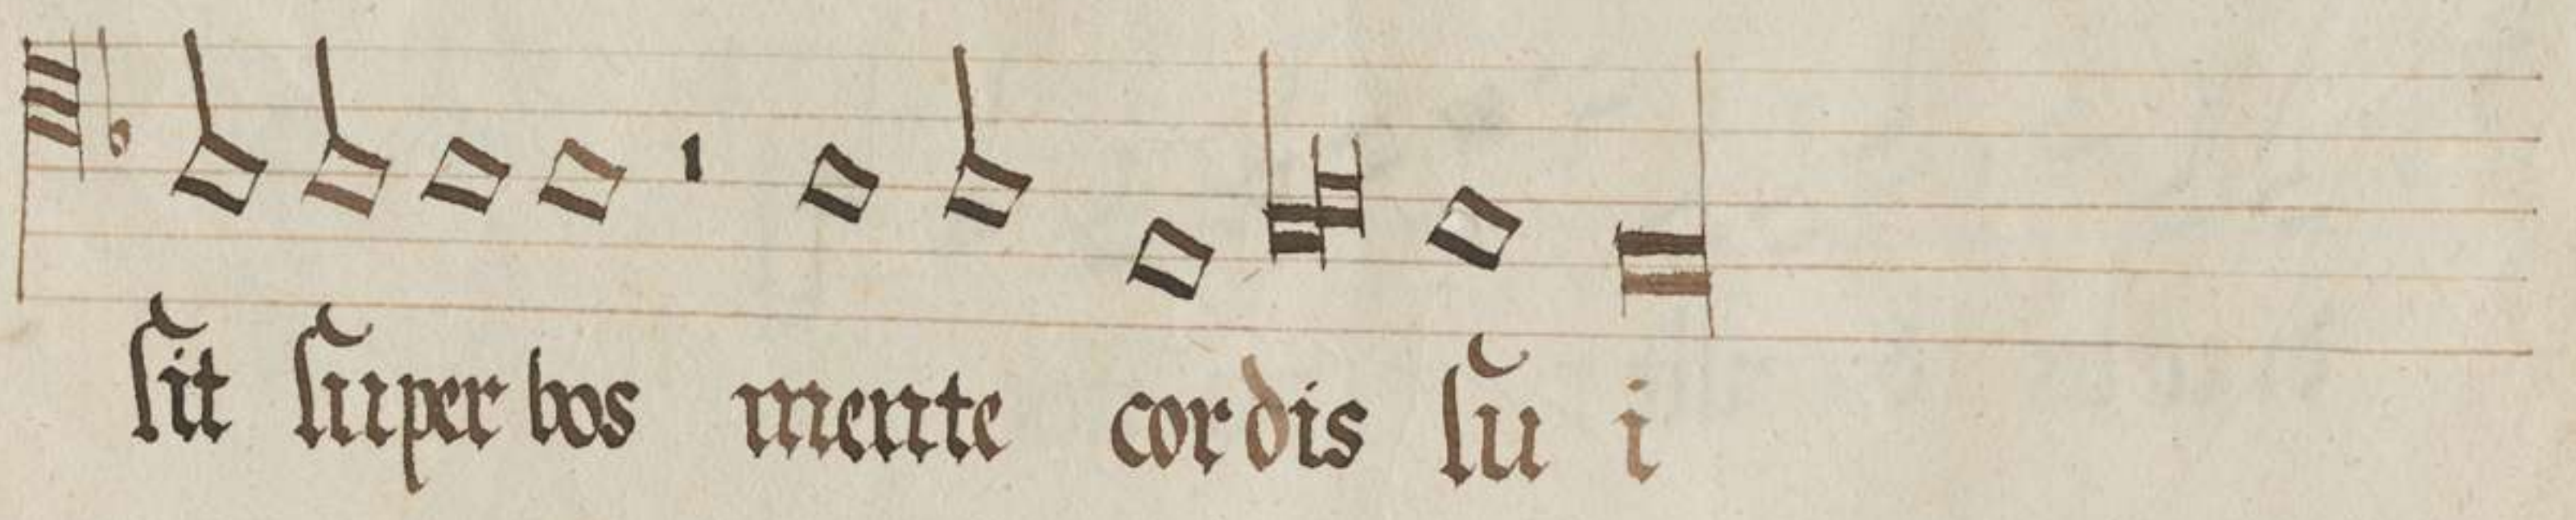 sit superbos mente cordis sui